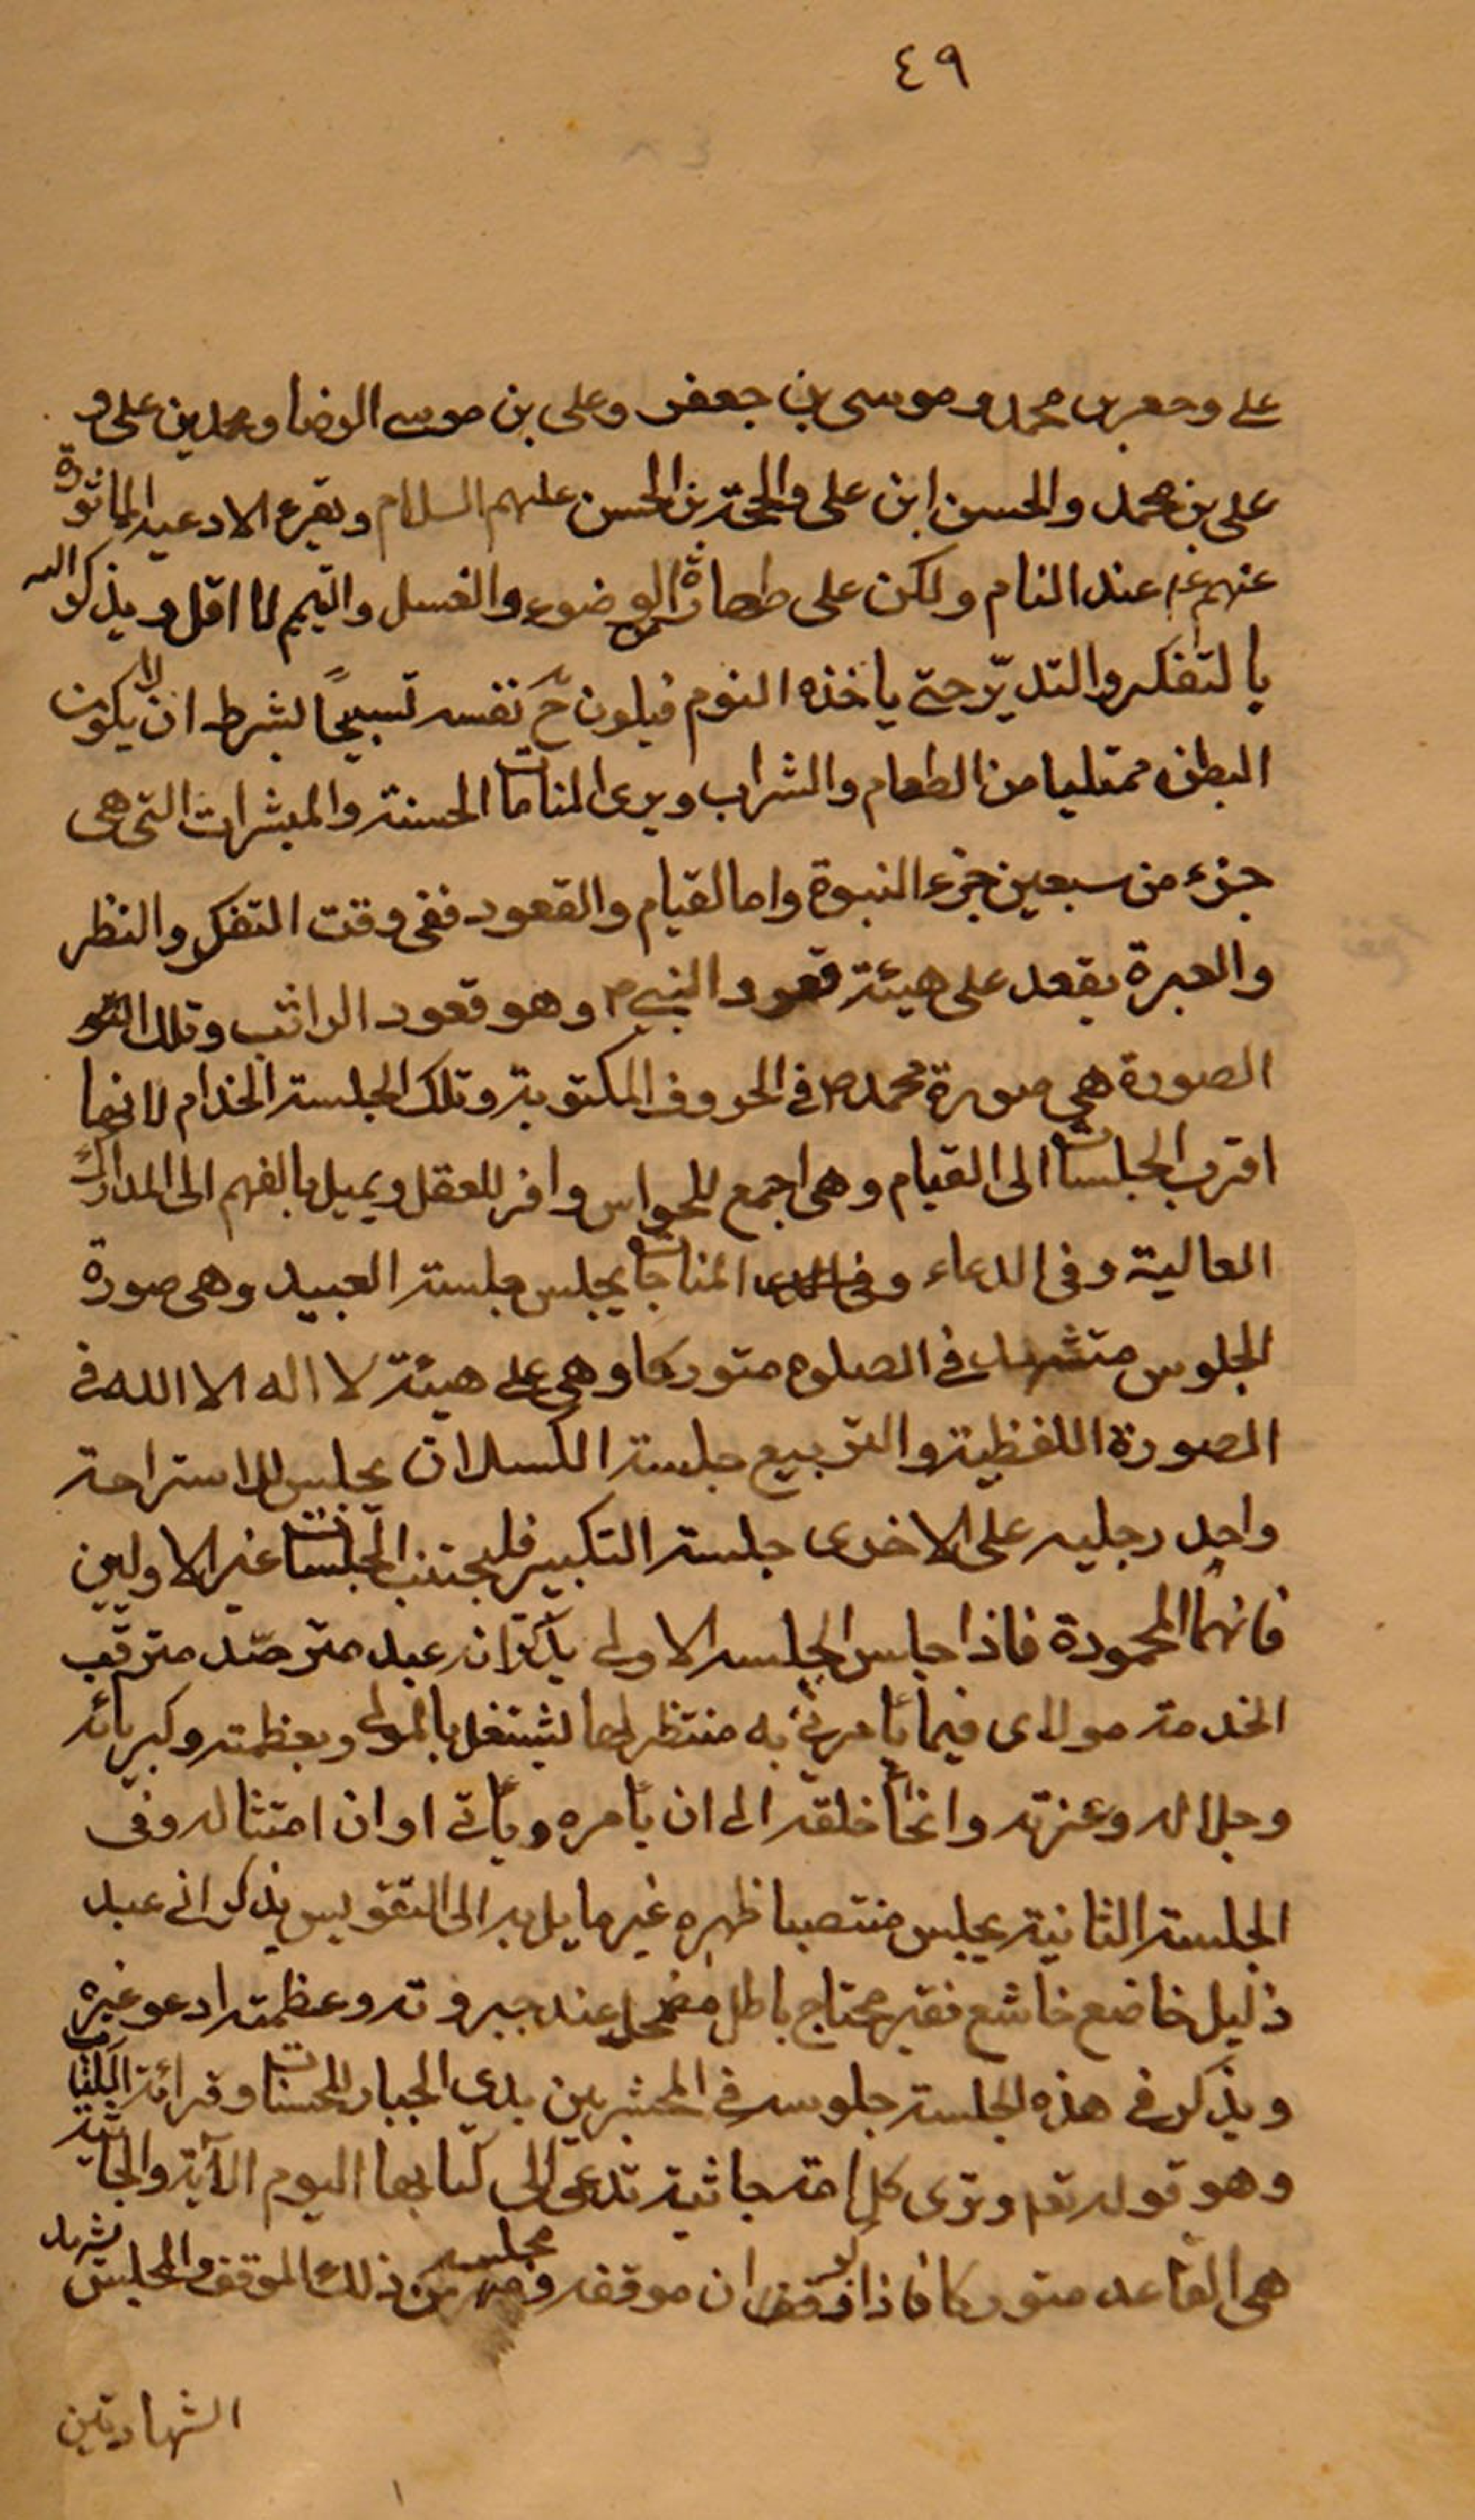 ٤٩
على وجعفر بن محمد وموسى بن جعفر وعلى بن موسى الرضا ومحمد بن على و
على بن محمد والحسن ابن على والحجة بن الحسن عليهم السلام ويقرء الادعية الماثورة
عنهم ع عند المنام ولكن على طهارة الوضوء والغسل والتيمم لا اقل ويذكر الله
بالتفكر والتدبّر حتى ياخذه النوم فيكون ح نفسه تسبيحًا بشرط ان لا يكون
البطن ممتليا من الطعام والشراب ويرى المنامات الحسنة والمبشرات التى هى
جزء من سبعين جزء النبوة واما القيام والقعود ففى وقت التفكر والنظر
والعبرة يقعد على هيئة قعود النبى ص وهو قعود الراتب وتلك
الصورة هى صورة محمد ص فى الحروف المكتوبة وتلك الجلسة الخدام لانها
اقرب الجلسات الى القيام وهى اجمع للحواس وافر للعقل ويميل بالفهم الى المدارك
العالية وفى الدعاء وفى المناجات يجلس جلسة العبيد وهى صورة
الجلوس متشهد فى الصلوة متوركا وهى على هيئة لا اله الا الله فى
الصورة اللفظية والتربيع جلسة الكسلان يجلس للاستراحة
واحد رجليه على الاخرى جلسة التكبير فليجتنب الجلسات غير الاوليين
فانهما المحمودة فاذا جلس الجلسه الاولى يذكر انه عبد مترصّد مترقّب
الخدمة مولاى فيما يأمرنى به منتظر لها ليشتغل بالمولى وبعظمته وكبريائه
وجلاله وعزته وانحاء خلقه الى ان يأمره ويأتى اوان امتثاله وفى
الجلسة الثانية يجلس منتصبا ظهره غير مايل به الى التقويس يذكر انى عبد
ذليل خاضع خاشع فقير محتاج باطل مضمحل عند جبروته وعظمته ادعو غيره
ويذكر فى هذه الجلسة جلوسه فى المحشر بين يدى الجبار للحسنات وقرائة الكتاب
وهو قوله تعم وترى كل امة جاثية تدعى الى كتابها اليوم الآية والجاثية
هى القاعد متوركا فاذا وقف ان موقفه ومجلسه من ذلك الموقف والمجلس يشهد
الشهادتين